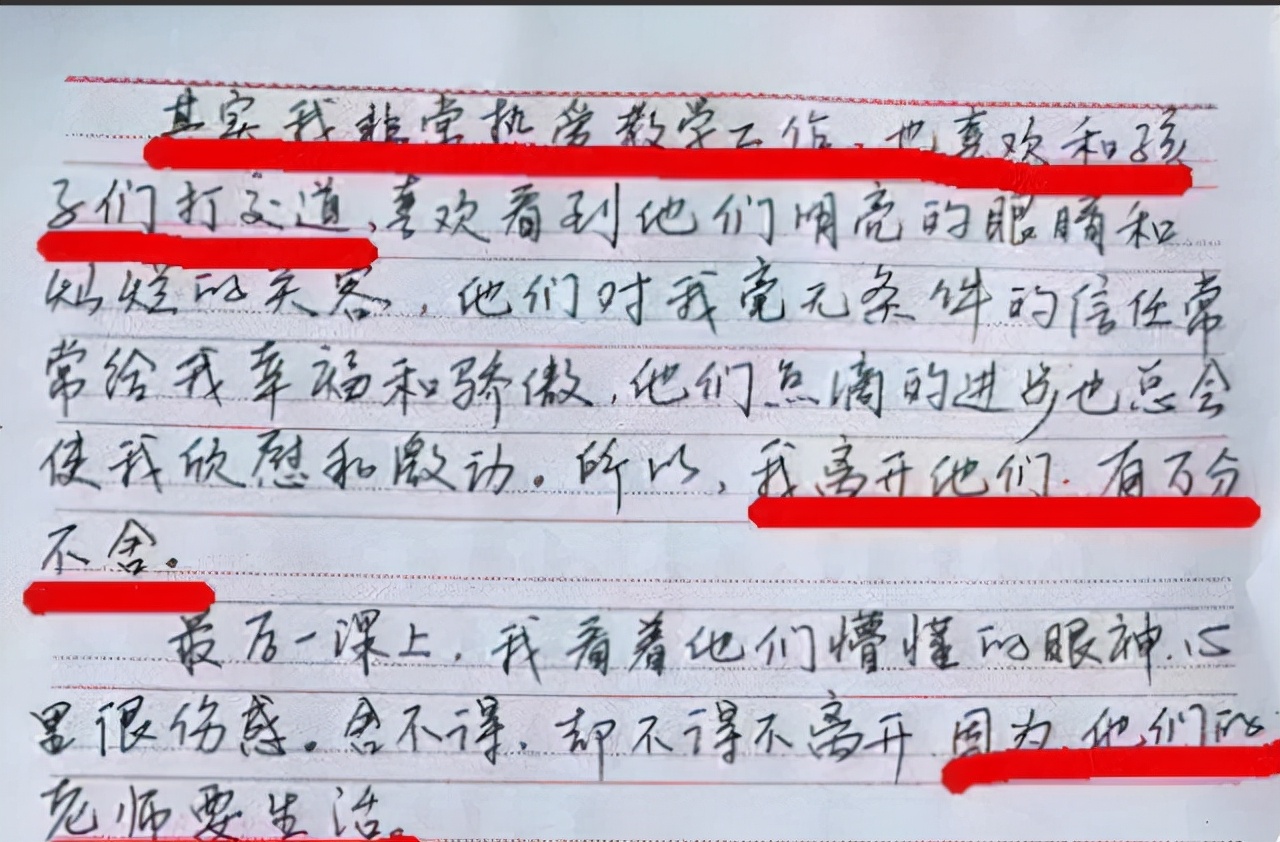 其实我非常热爱教学工作,也喜欢和孩
子们打交道,喜欢看到他们明亮的眼睛和
灿烂的笑容,他们对我毫无条件的信任常
常给我幸福和骄傲,他们点滴的进步也总会
使我欣慰和激动。所以,我离开他们.有万分
不舍。
最后一课上,我看着他们懵懂的眼神.心
里很伤感。舍不得,却不得不离开 因为他们的
老师要生活。